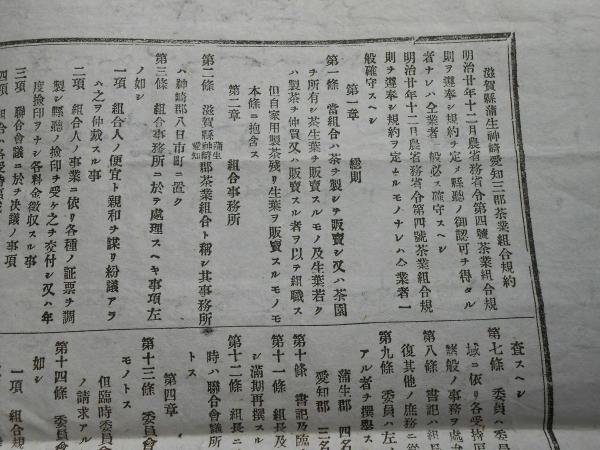 滋賀縣蒲生神崎愛知三郡茶業組合規約
明治廿年十二月農省務省令第四號茶業組合規
則ヲ遵奉シ規約ヲ定メ縣聽ノ御認可ヲ得タル
者ナレハ仝業者一般必ス確守スヘシ
明治廿年十二月農省務省令第四號茶業組合規
則ヲ遵奉シ規約ヲ定ムルモノナレハ仝業者一
般確守スヘシ
第一章　總則
第一條　當組合ハ茶ヲ製シテ販賣シ又ハ茶園
ヲ所有シ茶生葉ヲ販賣スルモノ及生葉若ク
ハ製茶ヲ仲買又ハ販賣スル者ヲ以テ組織ス
但自家用製茶殘リ生葉ヲ販賣スルモノモ
本條ニ抱含ス
第二章　組合事務所
第二條　滋賀縣蒲生神崎愛知郡茶業組合ト稱シ其事務所
ハ神崎郡八日市町ニ置ク
第三條　組合事務所ニ於テ處理スヘキ事項左
ノ如シ
一項　組合人ノ便宜ト親和ヲ謀リ紛議アラ
ハ之ヲ仲裁スル事
二項　組合人ノ事業ニ依リ各種ノ証票ヲ調
製シ縣聽ノ撿印ヲ受ケ之ヲ交付シ又ハ年
度撿印ヲナシ各料金徴収スル事
三項　聯合會議ニ於テ決議ノ事項
四項　組合
査スヘシ
第七條　委員ハ委員
域ニ依リ各受持區
第八條　書記ハ組長
諸般ノ事務ヲ處
復其他ノ庶務ニ從
第九條　委員ハ左ノ
アル者ヲ撰擧ス
蒲生郡　四名
愛知郡　三名
第十條　書記及臨
第十一條　組長及
シ滿期再撰スル
第十二條　組長ニ
時ハ聯合會議所
トス
第四章
第十三條　委員會
モノトス
但臨時委員會
ノ請求アル
第十四條　委員
如シ
一項　組合規